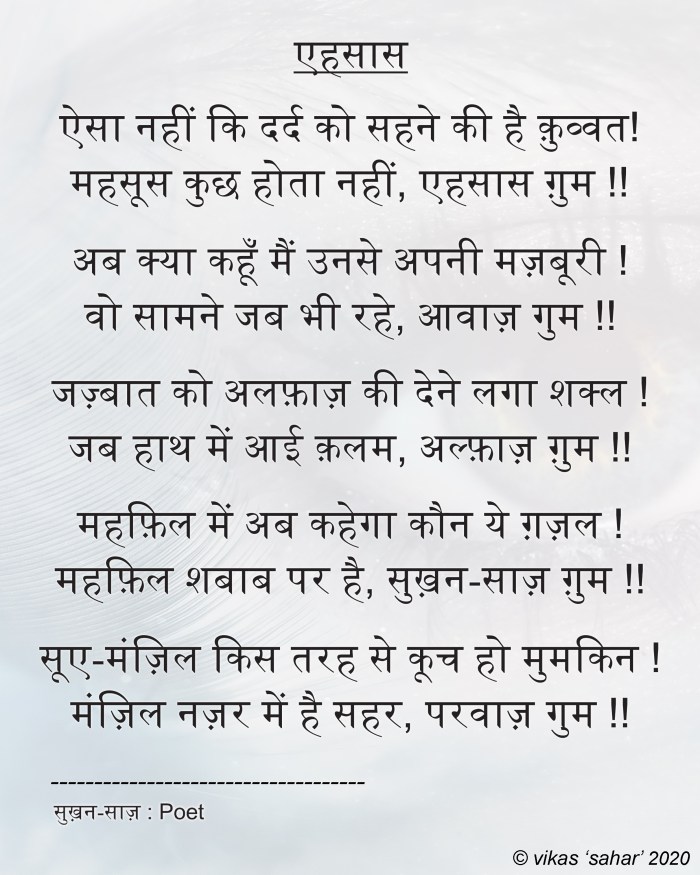 एहसास
ऐसा नहीं कि दर्द को सहने की है क़ुव्वत!
महसूस कुछ होता नहीं, एहसास ग़ुम !!
अब क्या कहूँ मैं उनसे अपनी मज़बूरी !
वो सामने जब भी रहे, आवाज़ गुम !!
जज़्बात को अलफ़ाज़ की देने लगा शक्ल !
जब हाथ में आई क़लम, अल्फ़ाज़ ग़ुम !!
महफ़िल में अब कहेगा कौन ये ग़ज़ल !
महफ़िल शबाब पर है, सुख़न-साज़ ग़ुम !!
सूए-मंज़िल किस तरह से कूच हो मुमकिन !
मंज़िल नज़र में है सहर, परवाज़ गुम !!
------------------------------------
सुख़न-साज़ : Poet
© vikas ‘sahar’ 2020